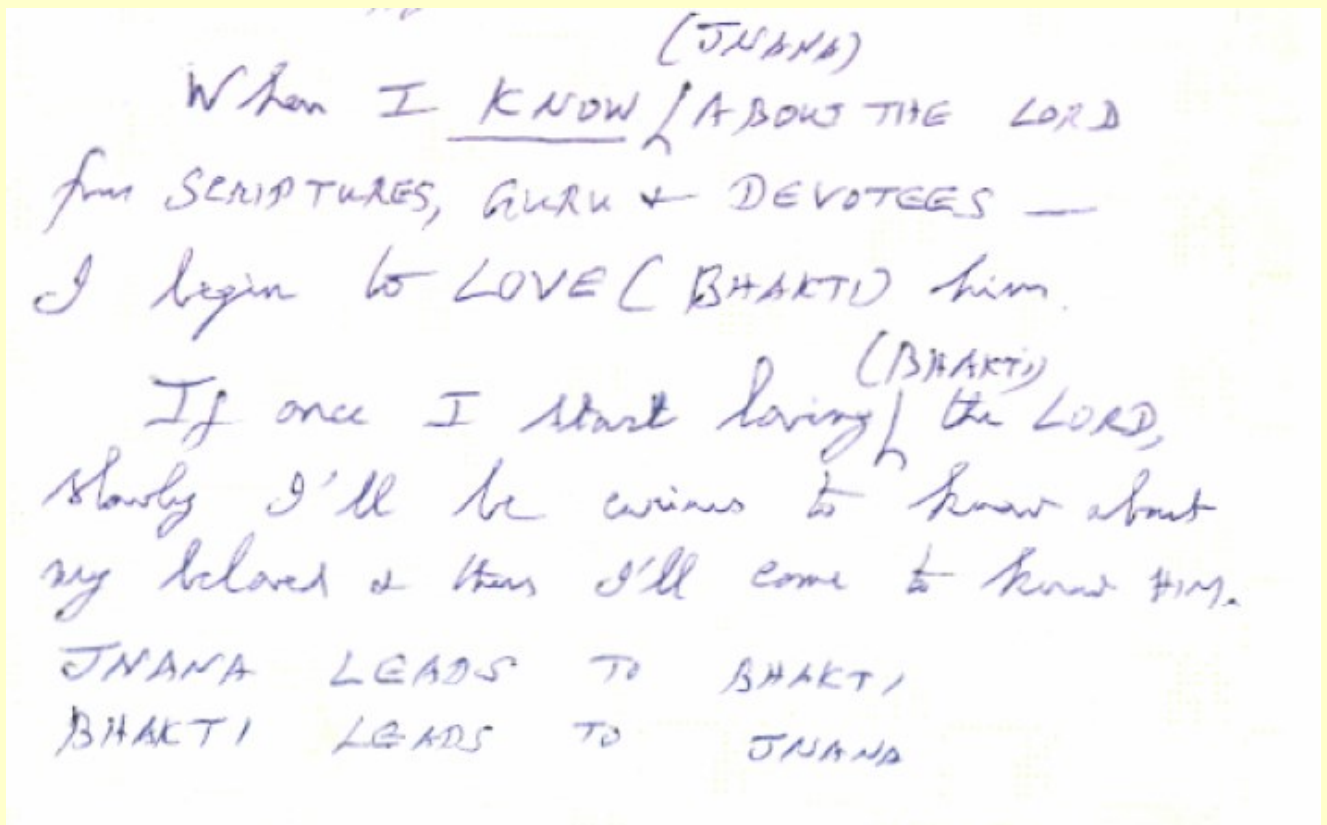 (JNANA)
When I KNOW ABOUT THE LORD
from SCRIPTURES, GURU & DEVOTEES —
I begin to LOVE (BHAKTI) him.
(BHAKTI)
If once I start loving the LORD,
slowly I'll be curious to know about
my beloved & thus I'll come to know HIM.
JNANA LEADS TO BHAKTI
BHAKTI LEADS TO JNANA